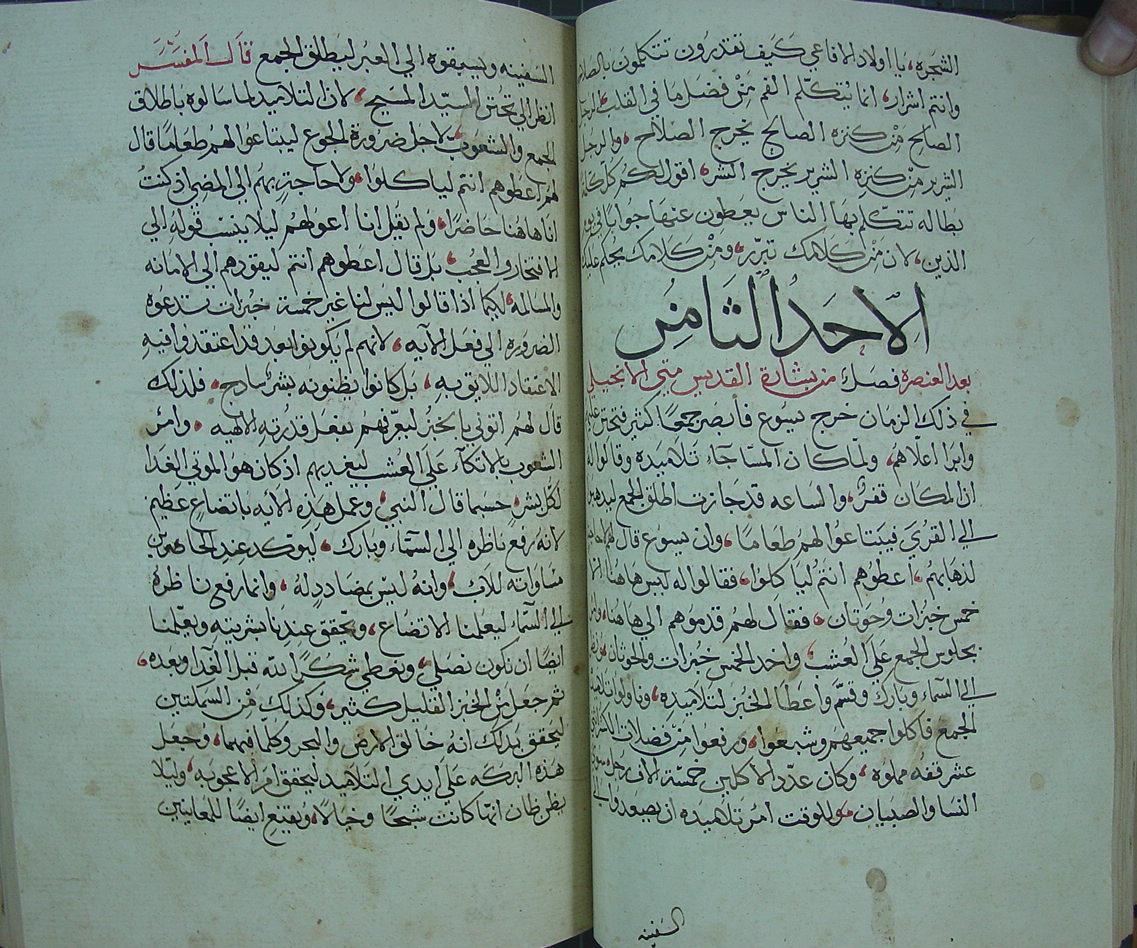 الشجره، يا اولاد الافاعي كيف تقدرون تتكلمون بالصلاح
وانتم اشرار، انما يتكلم الفم من فضل ما في القلب، الرجل
الصالح من كنزه الصالح يخرج الصلاح، والرجل
الشرير من كنزه الشرير يخرج الشر، اقول لكم كل كلمة
بطاله تتكلم بها الناس يعطون عنها جوابا في يوم
الدين، لان من كلامك تبرر، ومن كلامك يحكم عليك
الاحد الثامن
بعد العنصرة فصل من بشارة القديس متي الانجيلي
في ذلك الزمان خرج يسوع فابصر جمعا كثير فتحنن عليهم
وابرا اعلاهم، ولما كان المسا جاء تلاميذه وقالوا له
ان المكان قفر، والساعه قد جازت اطلق الجمع ليذهبوا
الي القري فيبتاعوا لهم طعاما، وان يسوع قال لهم لا حاجة
لذهابهم، اعطوهم انتم لياكلوا، فقالوا له ليس هاهنا الا
خمس خبزات وحوتان، فقال لهم قدموهم الي هاهنا، وامر
بجلوس الجمع علي العشب، واخد الخمس خبزات والحوتان، ونظر
الي السماء وبارك وقسم واعطا الخبز لتلاميذه، وناولوا تلاميذه
الجمع فاكلوا جميعهم وشبعوا، ورفعوا من فضلات الكسر اثني
عشر قفه مملوه، وكان عدد الاكلين خمسة الاف رجل سوي
النسا والصبيان، وللوقت امر تلاميذه ان يصعدوا الي
السفينه
السفينه ويسبقوه الي العبر ليطلق الجمع قال المفسر
انظر الي تحنن السيد المسيح، لان التلاميد لما سالوه باطلاق
الجمع والشعوب، لاجل ضرورة الجوع ليبتاعوا لهم طعاما قال
لهم اعطوهم انتم لياكلوا، ولا حاجة بهم الي المضي اذ كنت
انا هاهنا حاضرا، ولم يقل انا اعولهم ليلا ينسب قوله الي
الافتخار والعجب، بل قال اعطوهم انتم ليقودهم الي الامانه
والمساله، لكيما اذا قالوا ليس لنا غير خمسة خبزات تدعوه
الضروره الي فعل الآيه، لانهم لم يكونوا بعد قد اعتقدوا فيه
الاعتقاد اللايق به، بل كانوا يظنونه بشر سادج، فلذلك
قال لهم اتوني بالخبز ليعرفهم بفعل قدرته الالهيه، وامر
الشعوب بالاتكاء علي العشب ليغديهم اذ كان هو الموتي الغدا
لكل بشر، حسبما قال النبي، وعمل هذه الآيه باتضاع عظيم
لانه رفع ناظره الي السماء وبارك، ليوكد عند الجاهلين
مساواته للاب، وانه ليس بمضادد له، وانما رفع ناظره
الي السماء ليعلمنا الاتضاع، ويحقق عندنا بشريته ويعلمنا
ايضا ان نكون نصلي، ونعطي شكرا لله قبل الغدا وبعده،
ثم جعل من الخبز القليل كثير، وكذلك من السمكتين
ليحقق بذلك انه خالق الارض والبحر وكلما فيهما، وجعل
هذه البركه علي ايدي التلاميد ليحقق امر الاعجوبه، وليلا
يظن ظان انها كانت شبحا وخيالا، ويقنع ايضا للمعاينين